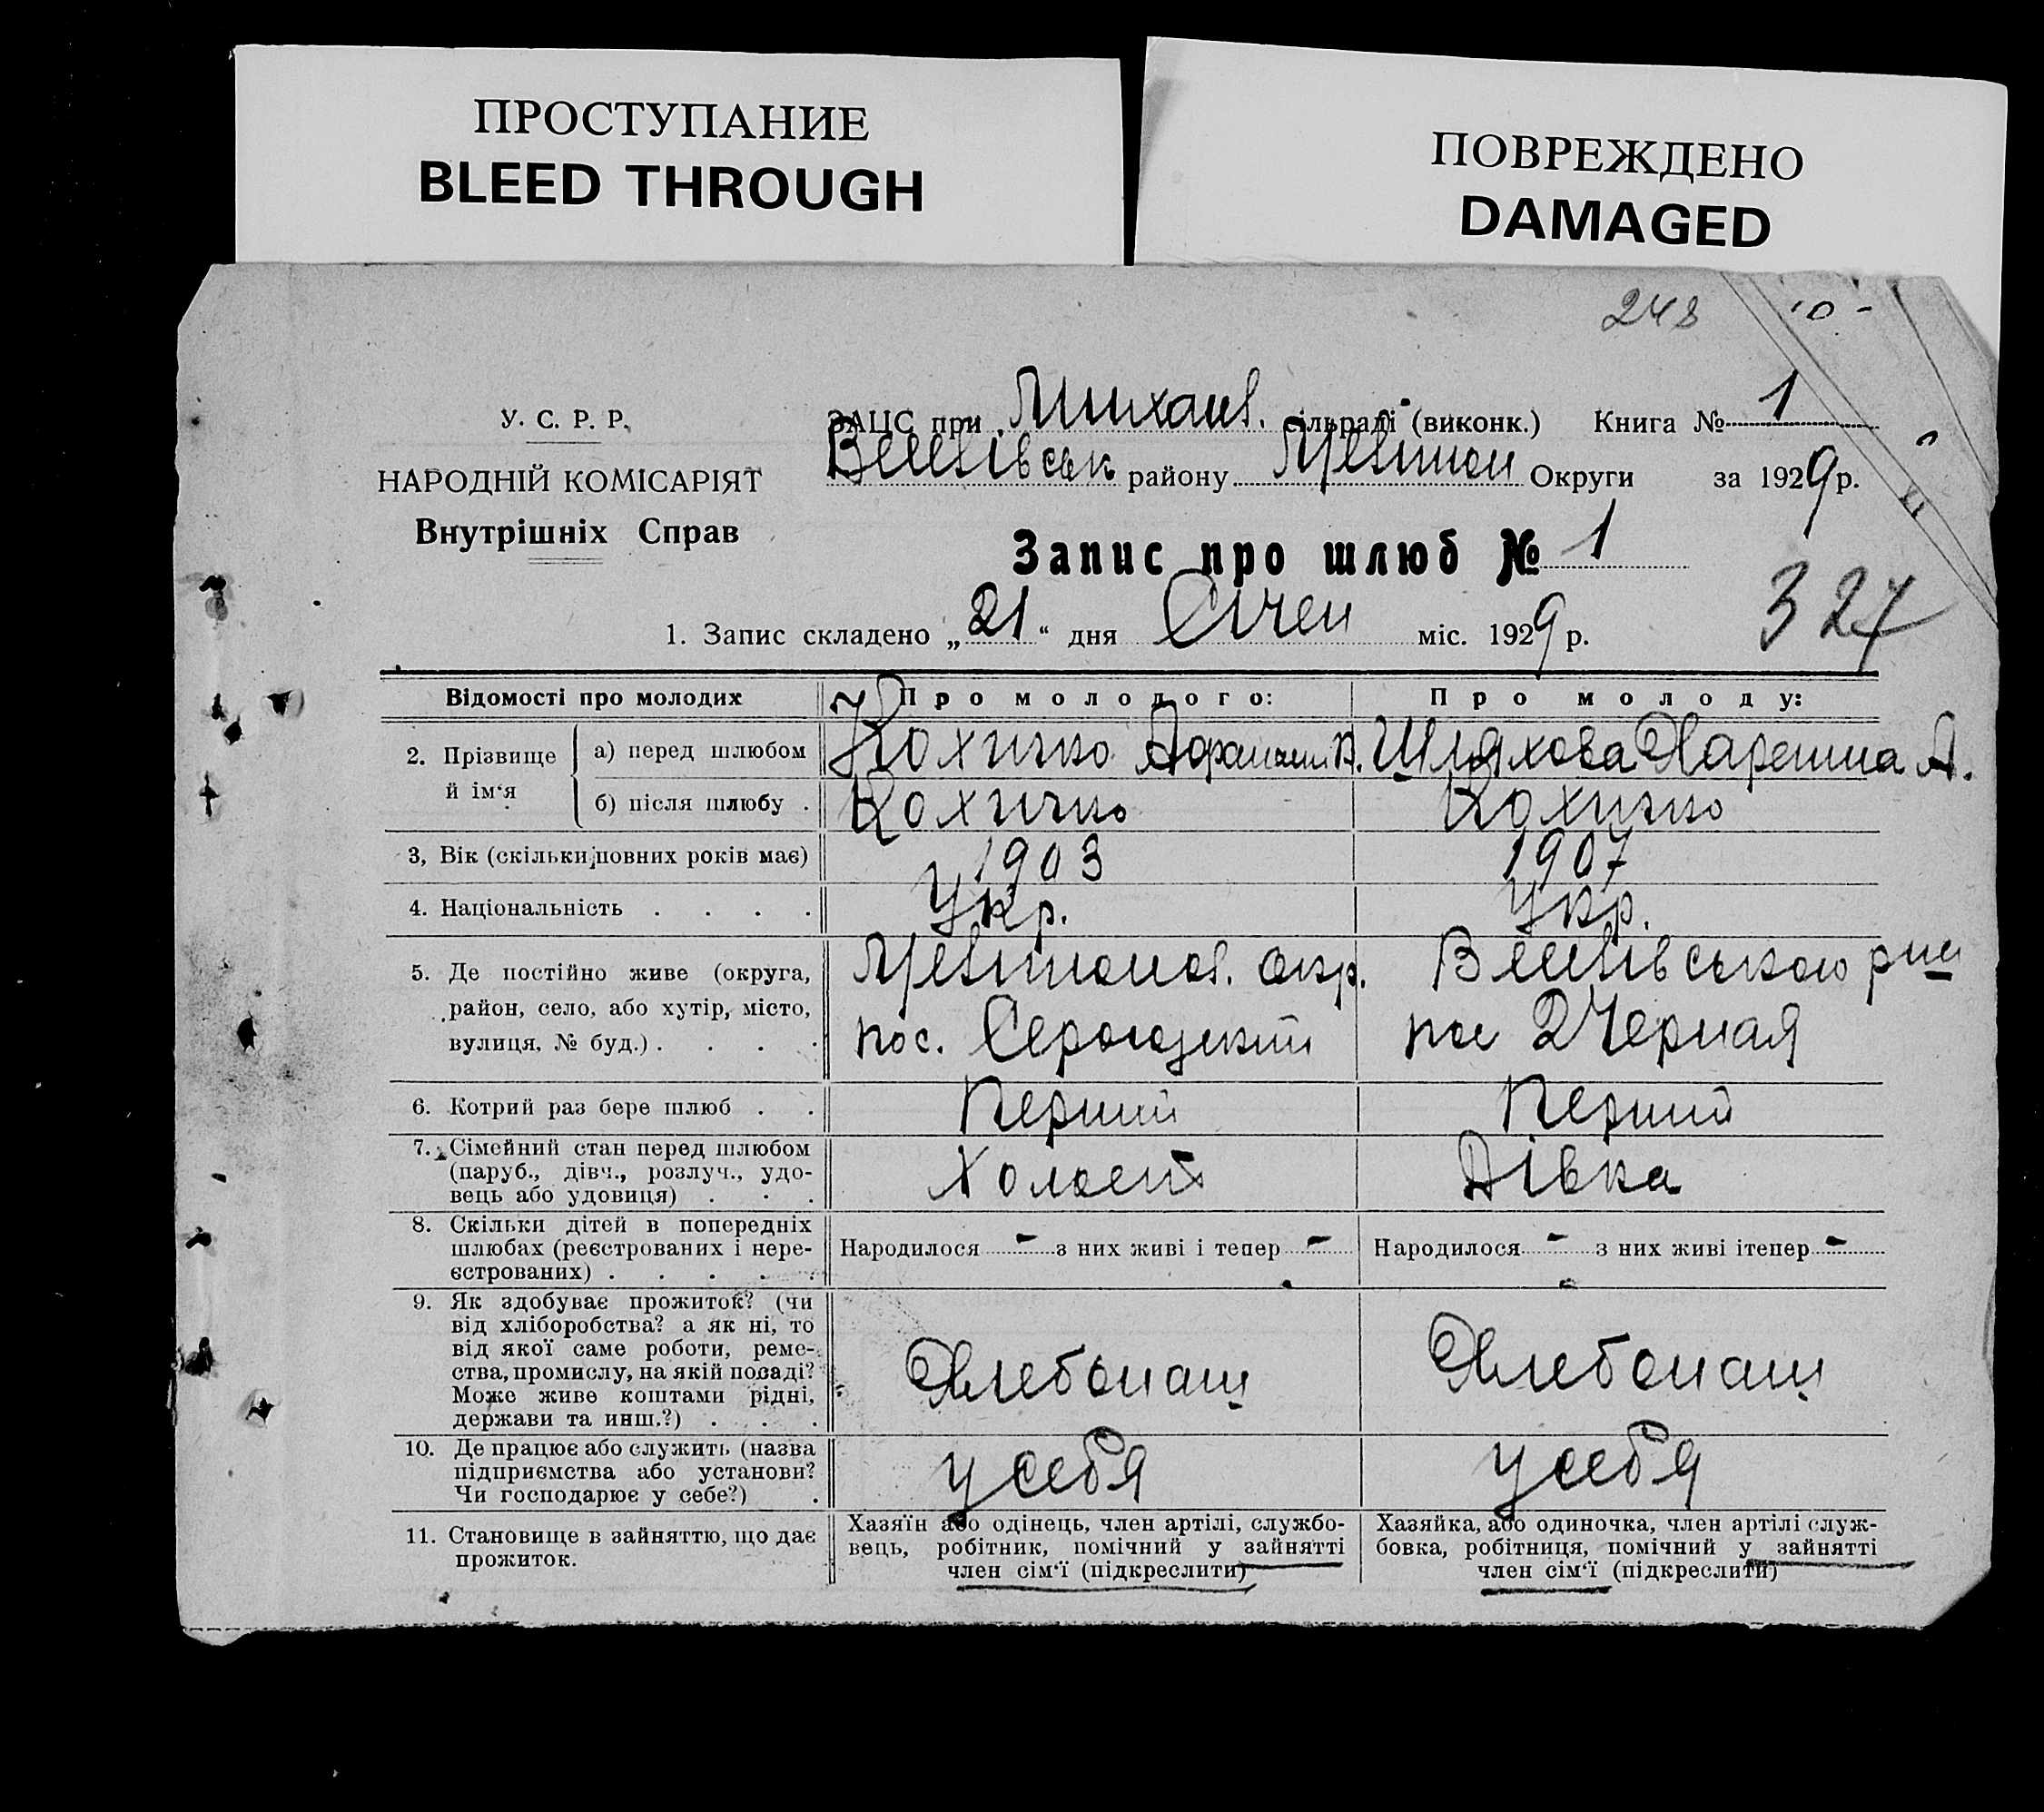 ПРОСТУПАНИЕ
BLEED THROUGH
ПОВРЕЖДЕНО
DAMAGED
248
У. С. Р. Р.
НАРОДНІЙ КОМІСАРІЯТ
Внутрішніх Справ
ЗАЦС при Михайл. сільраді (виконк.) Книга № 1
району Округи за 1929 р.
Запис про шлюб № 1
327
1. Запис складено „21“ дня Січеи міс. 1929 р.
Відомості про молодих Про молодого: Про молоду:
2. Прізвище й ім‘я
а) перед шлюбом Кохичко Шляхова А.
б) після шлюбу . Кохичко Кохичко
3, Вік (скільки повних років має) 1903 1907
4. Національність . . . . Укр. Укр.
5. Де постійно живе (округа,
район, село, або хутір, місто,
вулиця, № буд.) . . . .
окр.
пос.
2 Черная
6. Котрий раз бере шлюб . . Перший Перший
7. Сімейний стан перед шлюбом
(паруб., дівч., розлуч., удо-
вець або удовиця) . . .
Холост Дівка
8. Скільки дітей в попередніх
шлюбах (реєстрованих і нере-
єстрованих) . . . . .
Народилося - з них живі і тепер - Народилося - з них живі ітепер -
9. Як здобуває прожиток? (чи
від хліборобства? а як ні, то
від якої саме роботи, реме-
ства, промислу, на якій посаді?
Може живе коштами рідні,
держави та инш.?) . . .
Хлебопаш Хлебопаш
10. Де працює або служить (назва
підприємства або установи?
Чи господарює у себе?) .
у себя у себя
11. Становище в зайняттю, що дає
прожиток.
Хазяїн або одінець, член артілі, службо-
вець, робітник, помічний у зайнятті
член сім‘ї (підкреслити)
Хазяйка, або одиночка, член артілі служ-
бовка, робітниця, помічний у зайнятті
член сім‘ї (підкреслити)